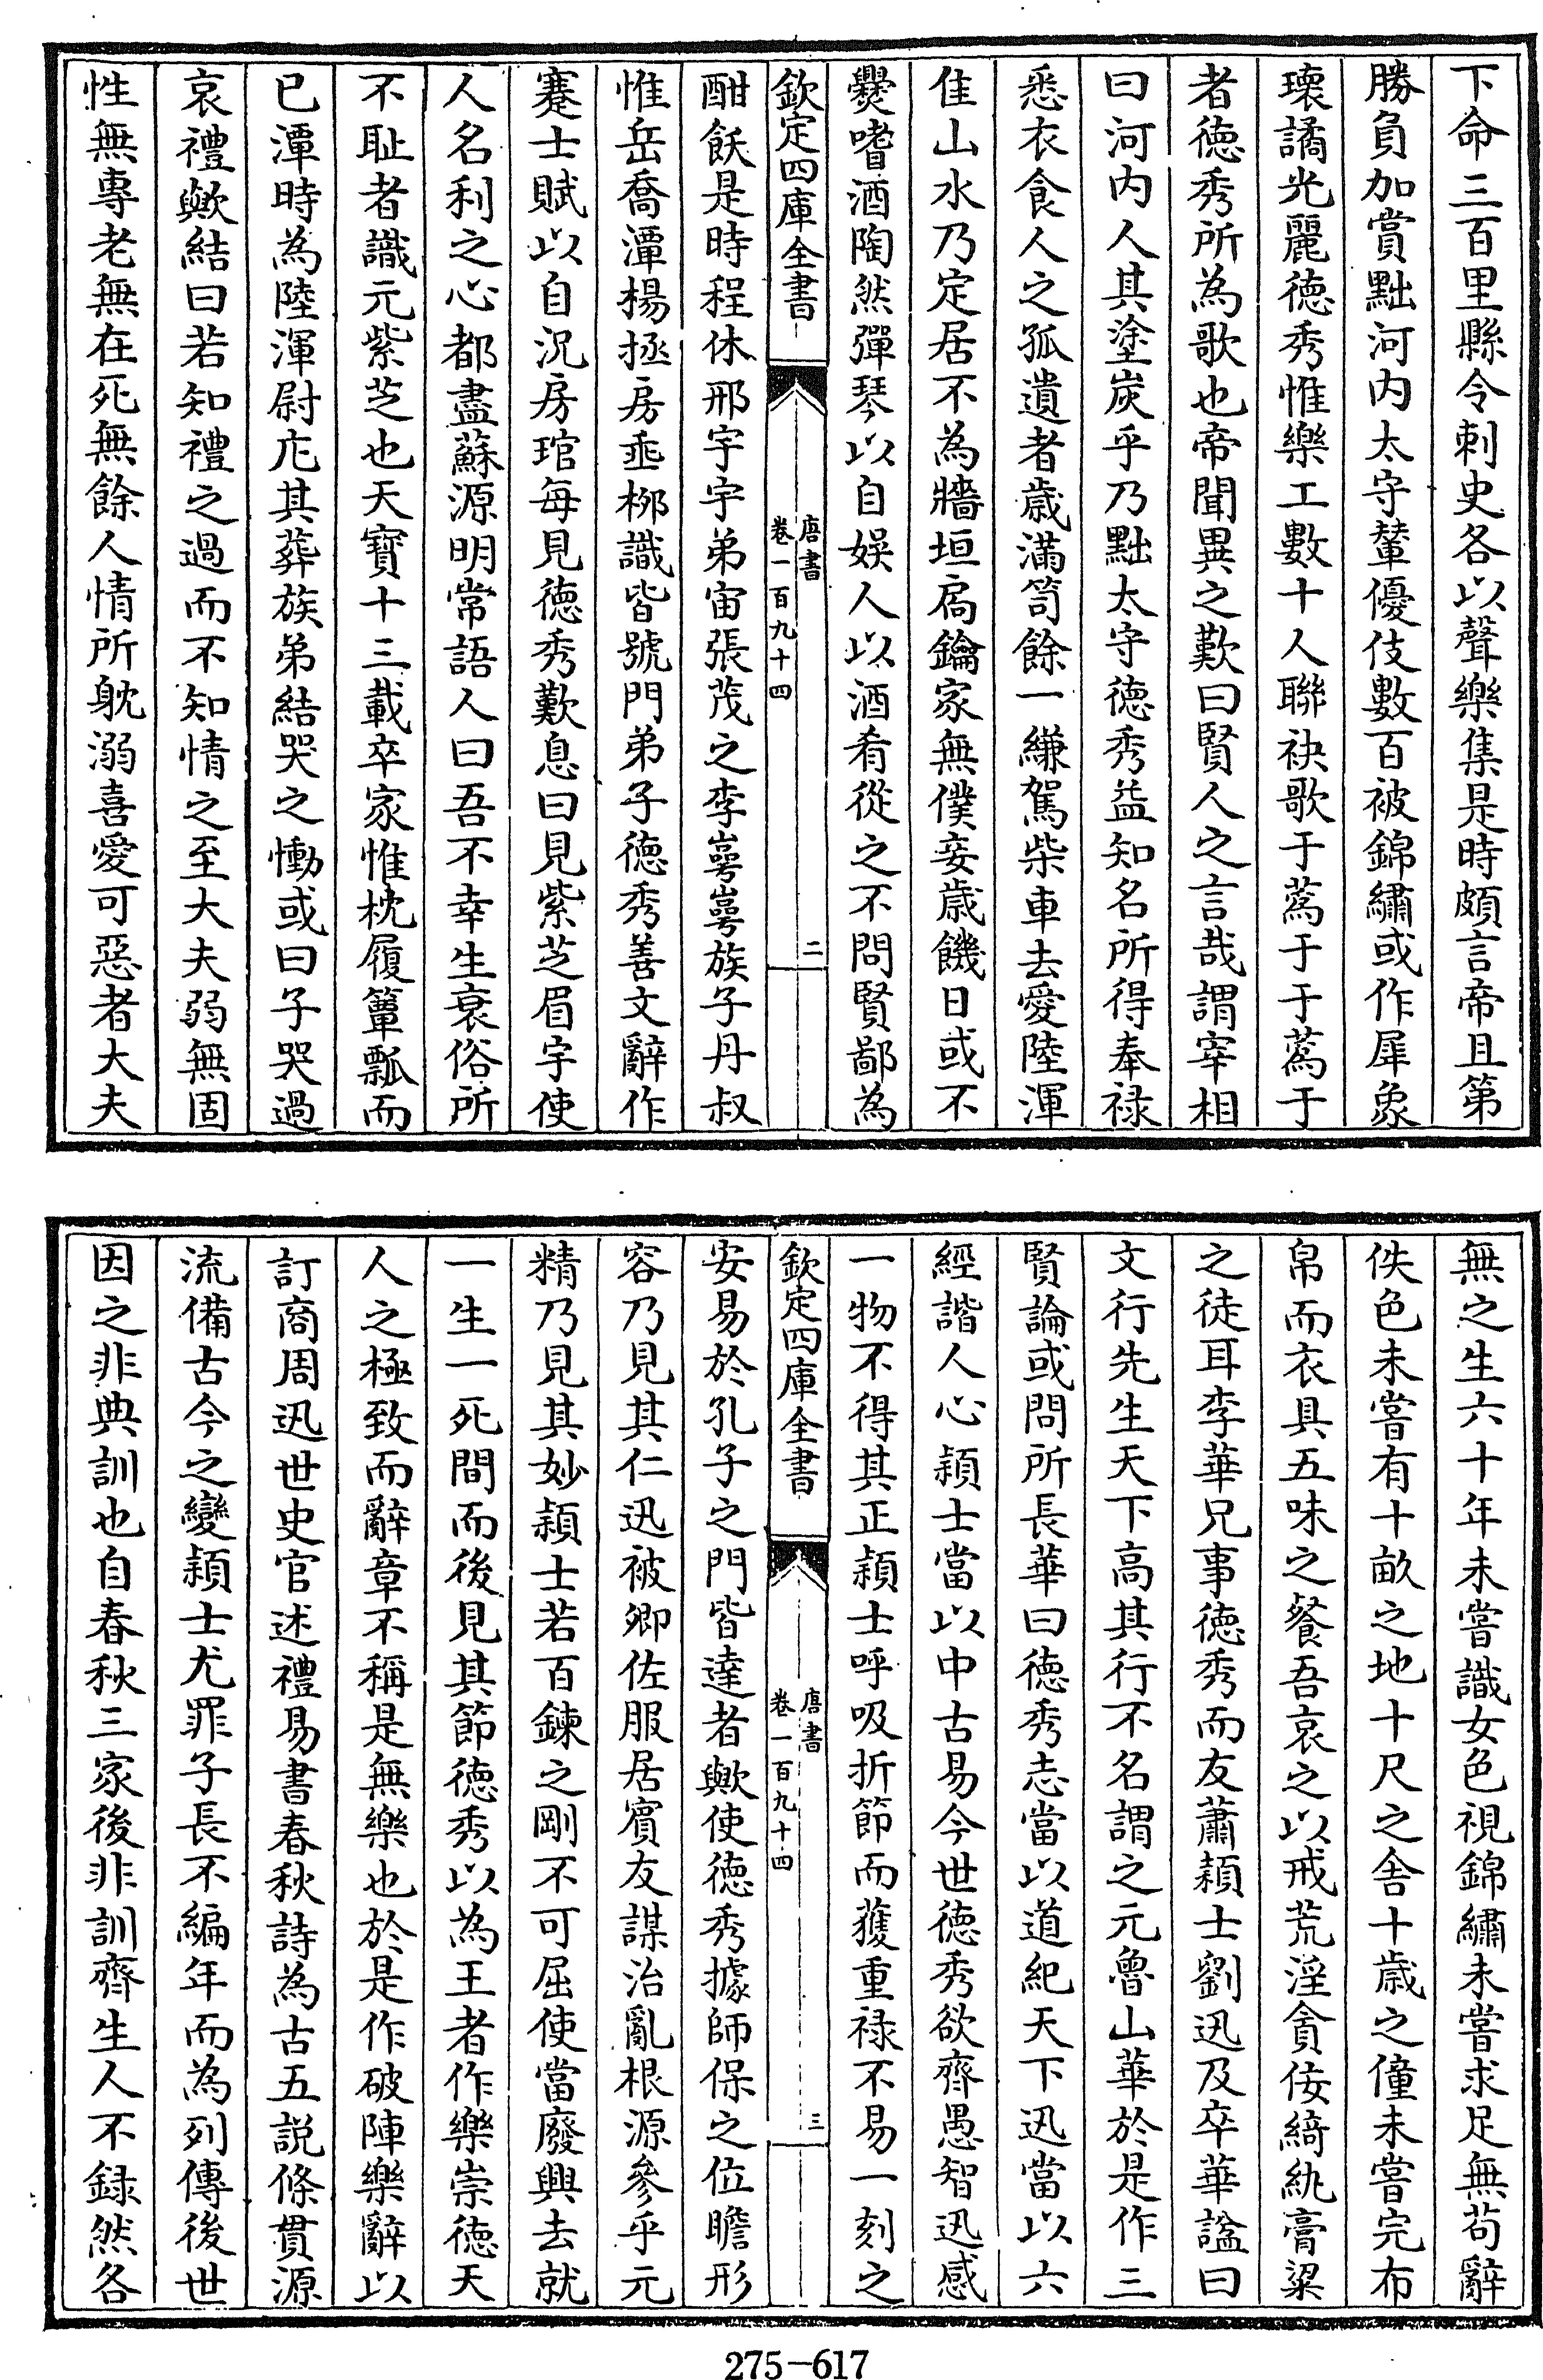 下命三百里縣令刺史各以聲樂集是時頗言帝且第
勝負加賞黜河内太守輦優伎數百被錦繡或作犀象
瓌譎光麗徳秀惟樂工數十人聯袂歌于蒍于于蒍于
者徳秀所為歌也帝聞異之歎曰賢人之言哉謂宰相
曰河内人其塗炭乎乃黜太守徳秀益知名所得奉禄
悉衣食人之孤遺者歳滿笥餘一縑駕柴車去愛陸渾
佳山水乃定居不為牆垣扃鑰家無僕妾歳饑日或不
爨嗜酒陶然彈琴以自娱人以酒肴從之不問賢鄙為
欽定四庫全書
唐書
卷一百九十四
二
酣飫是時程休邢宇宇弟宙張茂之李㟧㟧族子丹叔
惟岳喬潭楊拯房垂栁識皆號門弟子徳秀善文辭作
蹇士賦以自况房琯每見徳秀歎息曰見紫芝眉宇使
人名利之心都盡蘇源明常語人曰吾不幸生衰俗所
不耻者識元紫芝也天寳十三載卒家惟枕履簞瓢而
已潭時為陸渾尉庀其葬族弟結哭之慟或曰子哭過
哀禮歟結曰若知禮之過而不知情之至大夫弱無固
性無專老無在死無餘人情所躭溺喜愛可惡者大夫
無之生六十年未嘗識女色視錦繡未嘗求足無苟辭
佚色未嘗有十畝之地十尺之舎十歳之僮未嘗完布
帛而衣具五味之餐吾哀之以戒荒淫貪佞綺紈膏粱
之徒耳李華兄事徳秀而友蕭穎士劉迅及卒華諡曰
文行先生天下髙其行不名謂之元魯山華於是作三
賢論或問所長華曰徳秀志當以道紀天下迅當以六
經諧人心穎士當以中古易今世徳秀欲齊愚智迅感
一物不得其正穎士呼吸折節而獲重禄不易一刻之
欽定四庫全書
唐書
卷一百九十四
三
安易於孔子之門皆達者歟使徳秀據師保之位瞻形
容乃見其仁迅被卿佐服居賓友謀治亂根源參乎元
精乃見其妙穎士若百鍊之剛不可屈使當廢興去就
一生一死間而後見其節徳秀以為王者作樂崇徳天
人之極致而辭章不稱是無樂也於是作破陣樂辭以
訂商周迅世史官述禮易書春秋詩為古五説條貫源
流備古今之變穎士尤罪子長不編年而為列傳後世
因之非典訓也自春秋三家後非訓齊生人不録然各
275-617